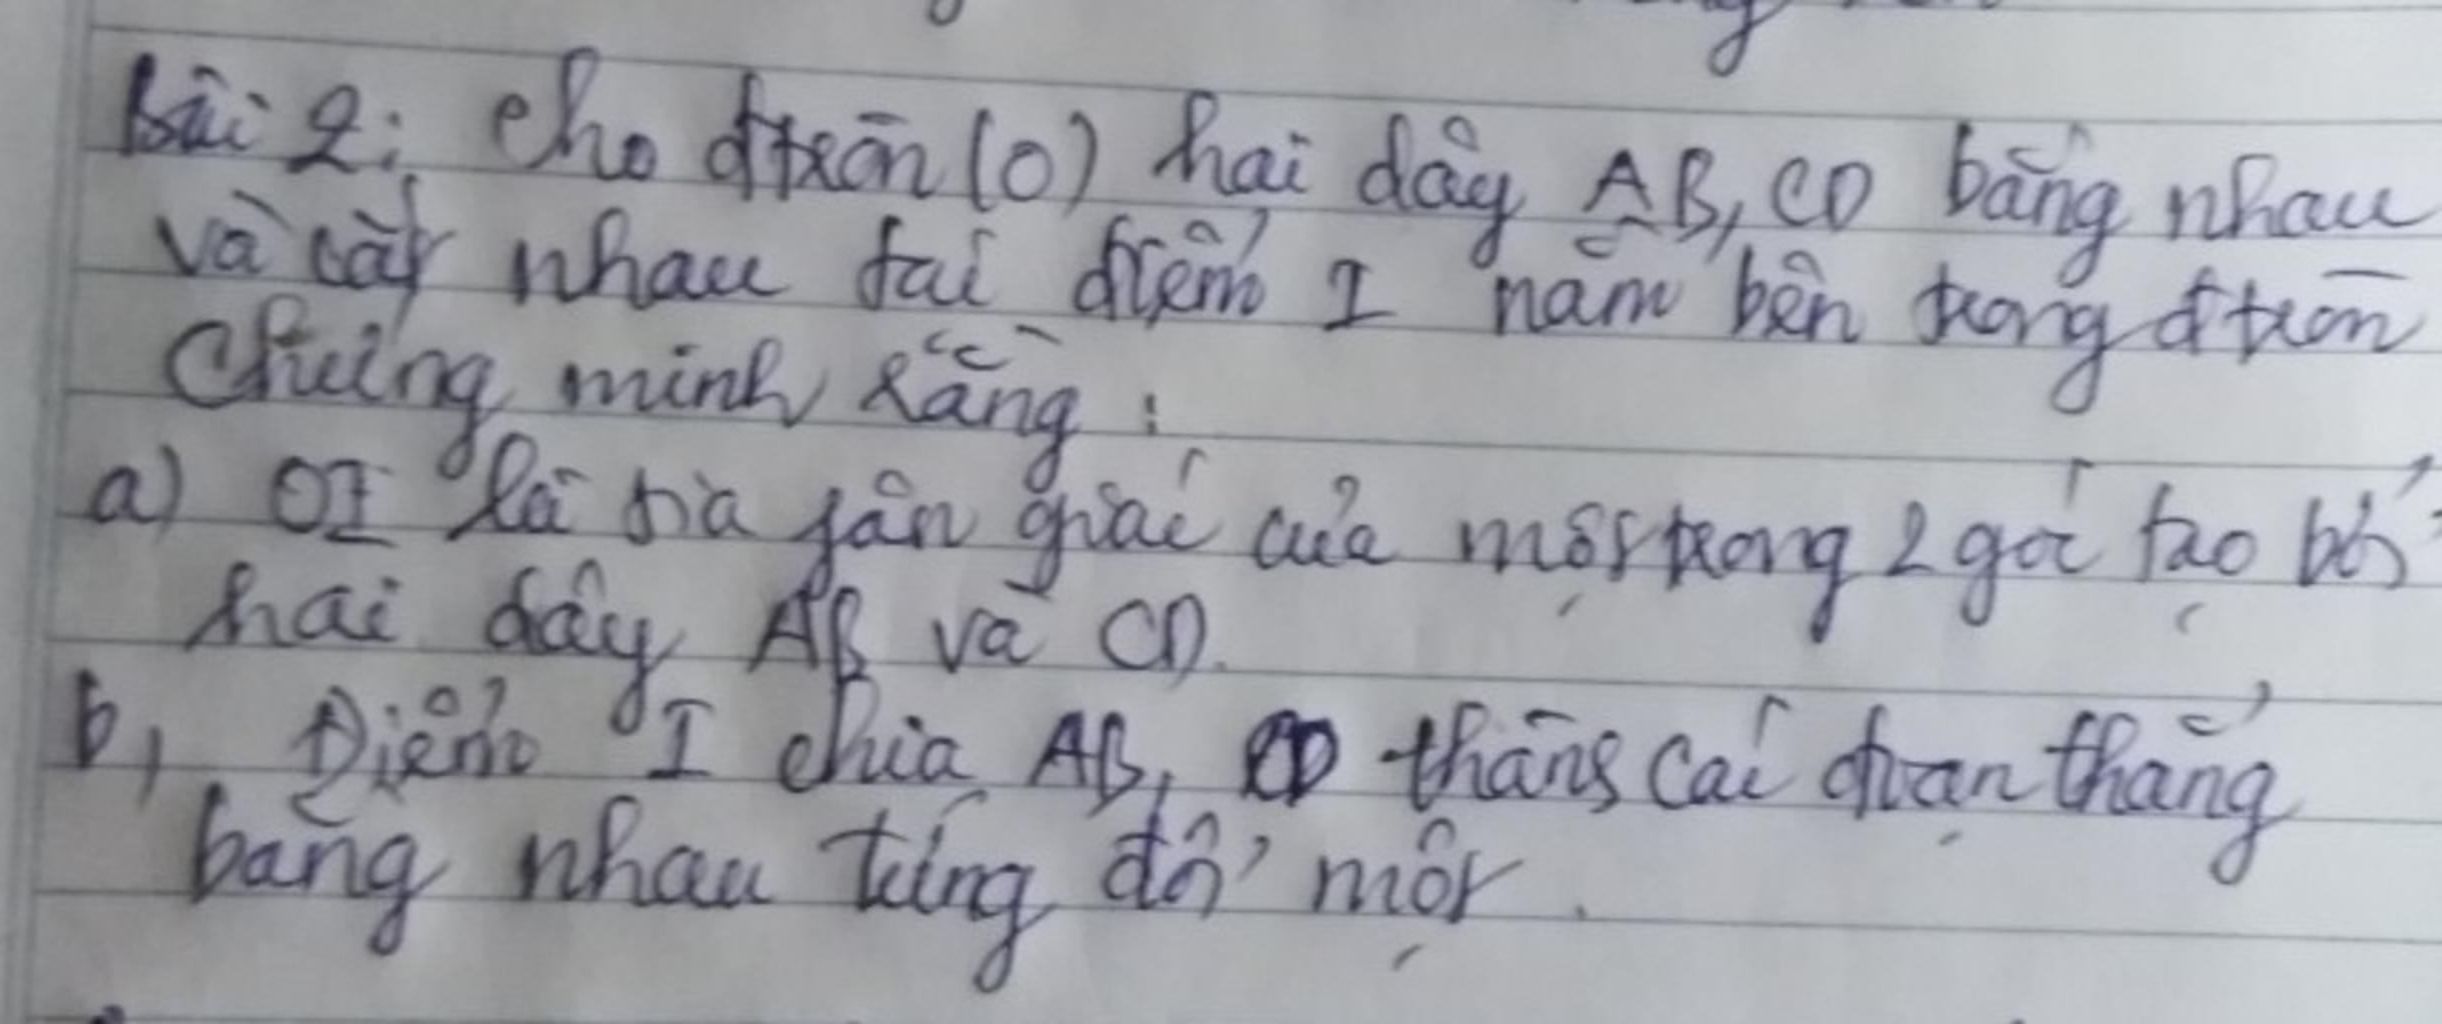 Bài 2: Cho đtròn (O) hai dây AB, CD bằng nhau
và cắt nhau tại điểm I nằm bên trong đtròn
Chứng minh rằng:
a) OI là tia fân giác của một trong 2 góc tạo bởi
hai dây AB và CD.
b, Điểm I chia AB, CD thành các đoạn thẳng
bằng nhau từng đôi một.